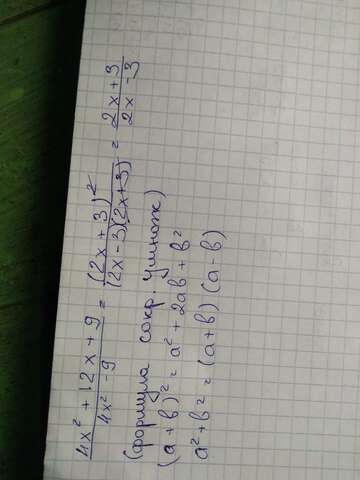 (4x² + 12x + 9)/(4x² - 9) = (2x + 3)²/((2x - 3)(2x + 3)) = (2x + 3)/(2x - 3)
(формула сокр. умнож)
(a + b)² = a² + 2ab + b²
a² + b² = (a + b) (a - b)